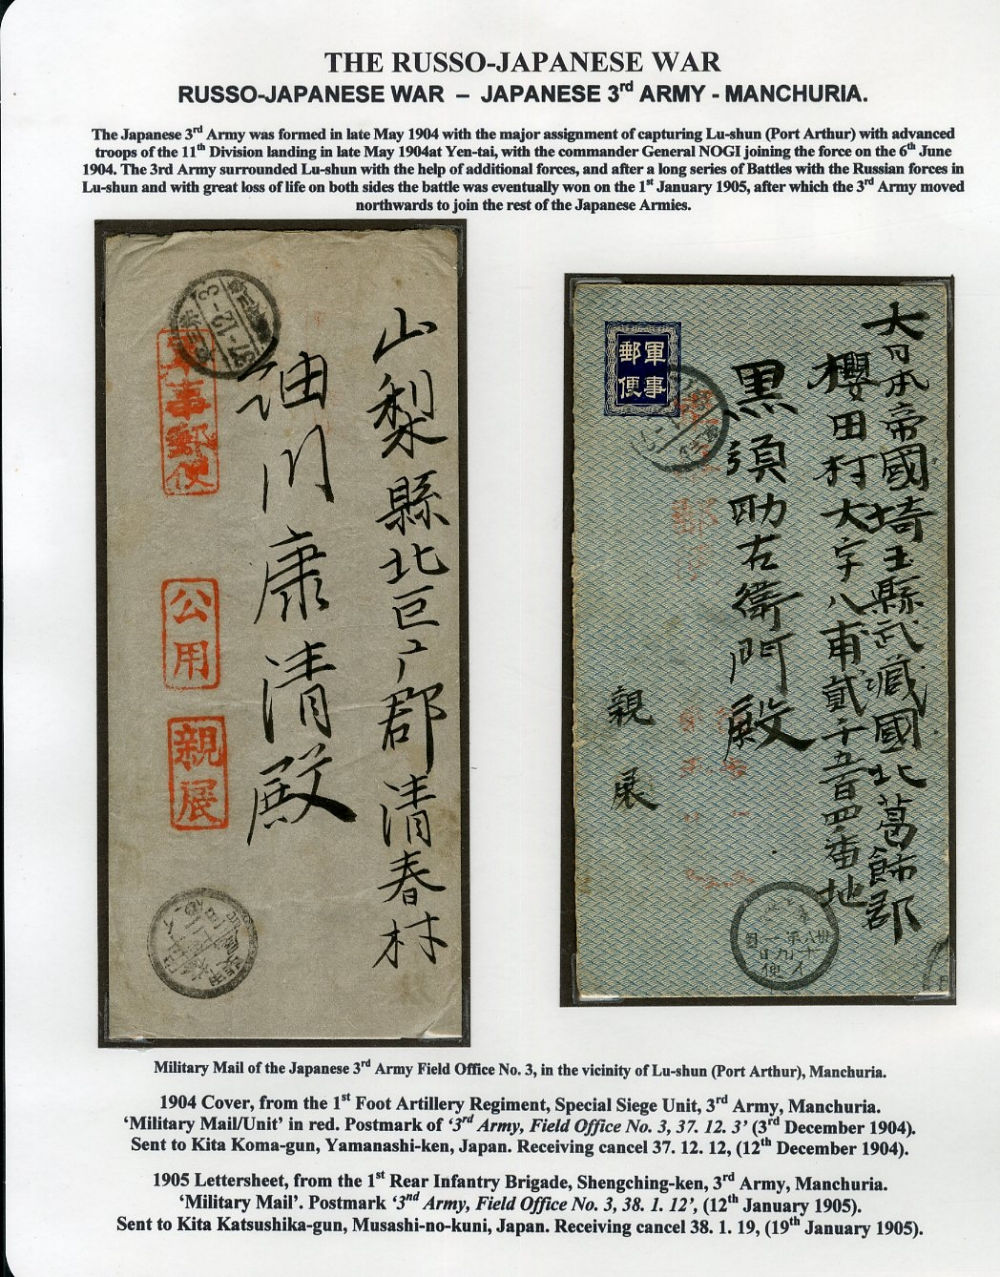 THE RUSSO-JAPANESE WAR
RUSSO-JAPANESE WAR – JAPANESE 3rd ARMY - MANCHURIA.
The Japanese 3rd Army was formed in late May 1904 with the major assignment of capturing Lu-shun (Port Arthur) with advanced
troops of the 11th Division landing in late May 1904at Yen-tai, with the commander General NOGI joining the force on the 6th June
1904. The 3rd Army surrounded Lu-shun with the help of additional forces, and after a long series of Battles with the Russian forces in
Lu-shun and with great loss of life on both sides the battle was eventually won on the 1st January 1905, after which the 3rd Army moved
northwards to join the rest of the Japanese Armies.
山梨縣北巨广郡清春村
油川康清殿
軍事郵便
公用
親展
37-12-3
大日本帝國埼玉縣武藏國北葛飾郡
櫻田村大字八甫貳千五百四番地
黒須助右衛門殿
親展
軍事
郵便
Military Mail of the Japanese 3rd Army Field Office No. 3, in the vicinity of Lu-shun (Port Arthur), Manchuria.
1904 Cover, from the 1st Foot Artillery Regiment, Special Siege Unit, 3rd Army, Manchuria.
‘Military Mail/Unit’ in red. Postmark of ‘3rd Army, Field Office No. 3, 37. 12. 3’ (3rd December 1904).
Sent to Kita Koma-gun, Yamanashi-ken, Japan. Receiving cancel 37. 12. 12, (12th December 1904).
1905 Lettersheet, from the 1st Rear Infantry Brigade, Shengching-ken, 3rd Army, Manchuria.
‘Military Mail’. Postmark ‘3nd Army, Field Office No. 3, 38. 1. 12’, (12th January 1905).
Sent to Kita Katsushika-gun, Musashi-no-kuni, Japan. Receiving cancel 38. 1. 19, (19th January 1905).